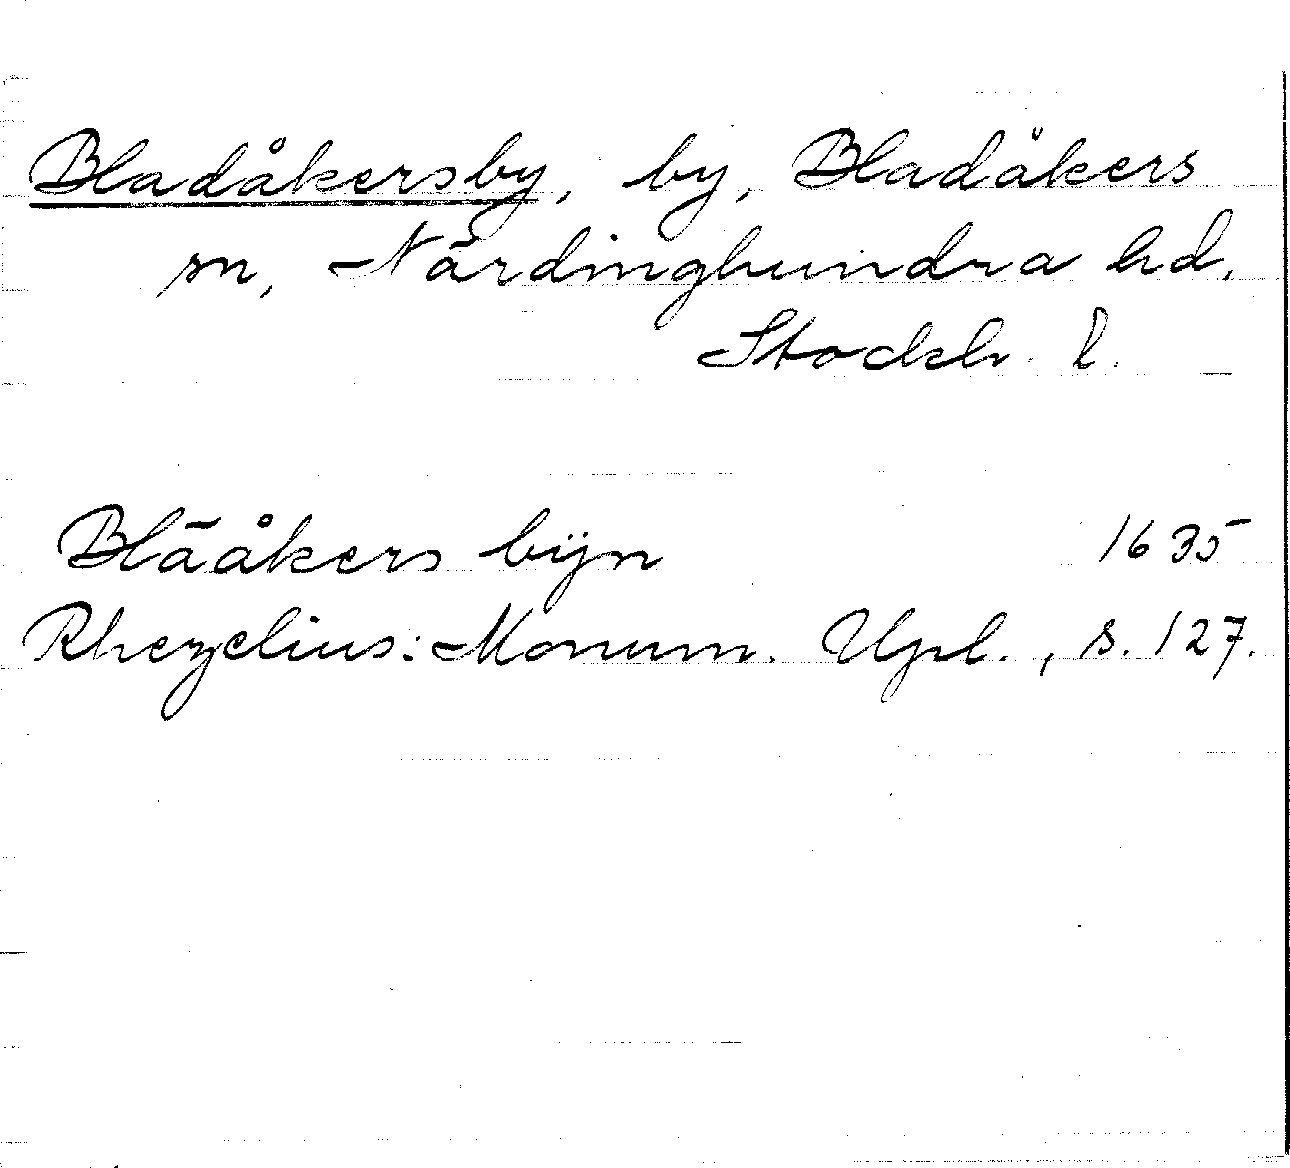 Bladåkersby, by, Bladåkers
sn, Närdinghundra hd,
Stockh. l.
Blāåkers bÿn 1635
Rhezelius: Monum. Upl., s. 127.